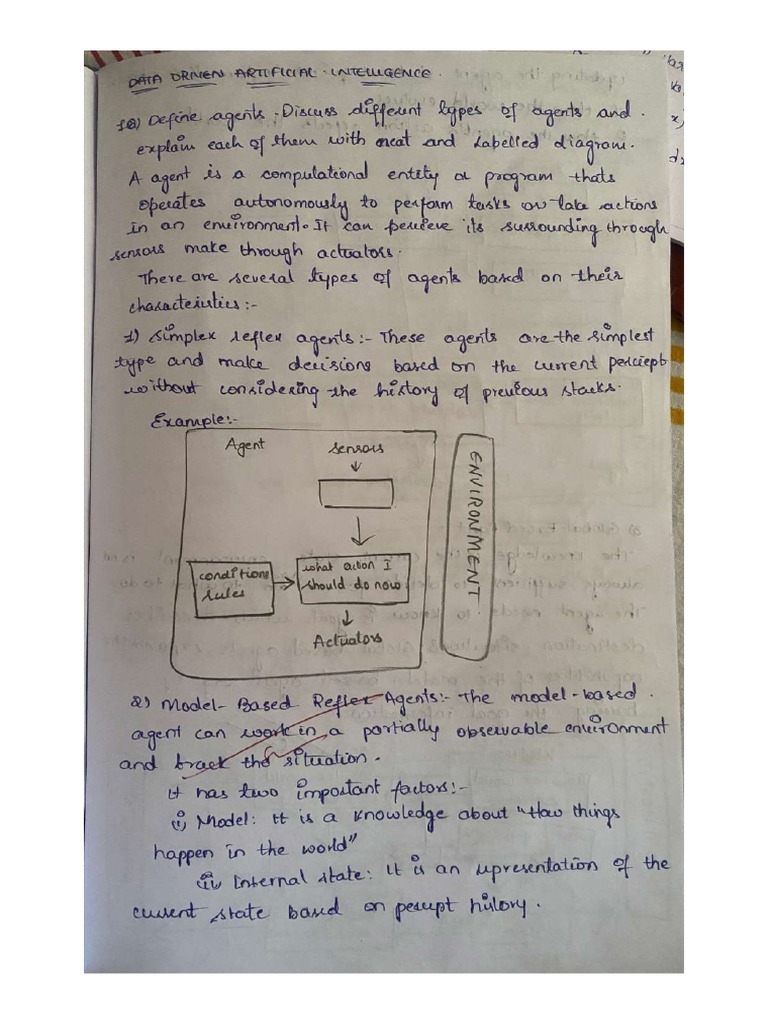 DATA DRIVEN ARTIFICIAL INTELLIGENCE.
1a) Define agents. Discuss different types of agents and
explain each of them with neat and Labelled diagram.
A agent is a computational entity or program thats
operates autonomously to perform tasks or take actions
in an environment. It can percieve its surrounding through
sensors make through actuators.
There are several types of agents based on their
characteristics:-
1) Simplex reflex agents:- These agents are the simplest
type and make decisions based on the current perciept
without considering the history of previous stacks.
Example:-
Agent
sensors
ENVIRONMENT.
conditions
rules
what action I
should do now
Actuators
2) Model-Based Reflex Agents:- The model-based
agent can work in a partially observable environment
and track the situation.
It has two important factors:-
i) Model: It is a knowledge about "How things
happen in the world"
ii) Internal state: It is an representation of the
current state based on percept history.